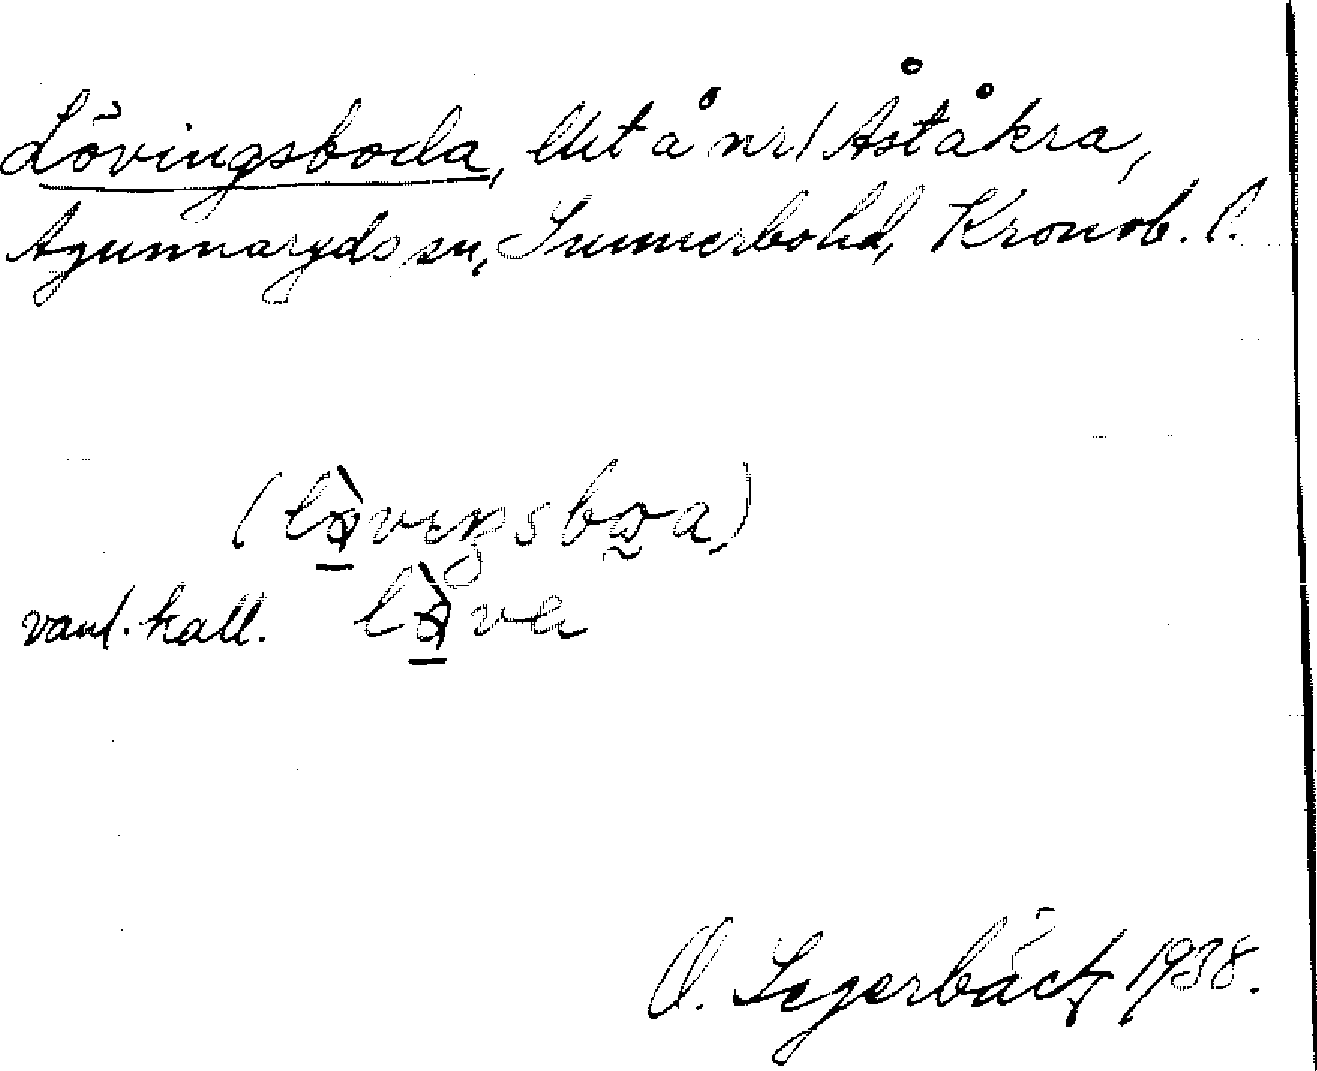 Lövingsboda, lht å nr 1 Åståkra,
Agunnaryds sn, Sunnerbo hd, Kronob. l.
(lövengsboa)
vanl. kall. löve
O. Segerbäck 1938.